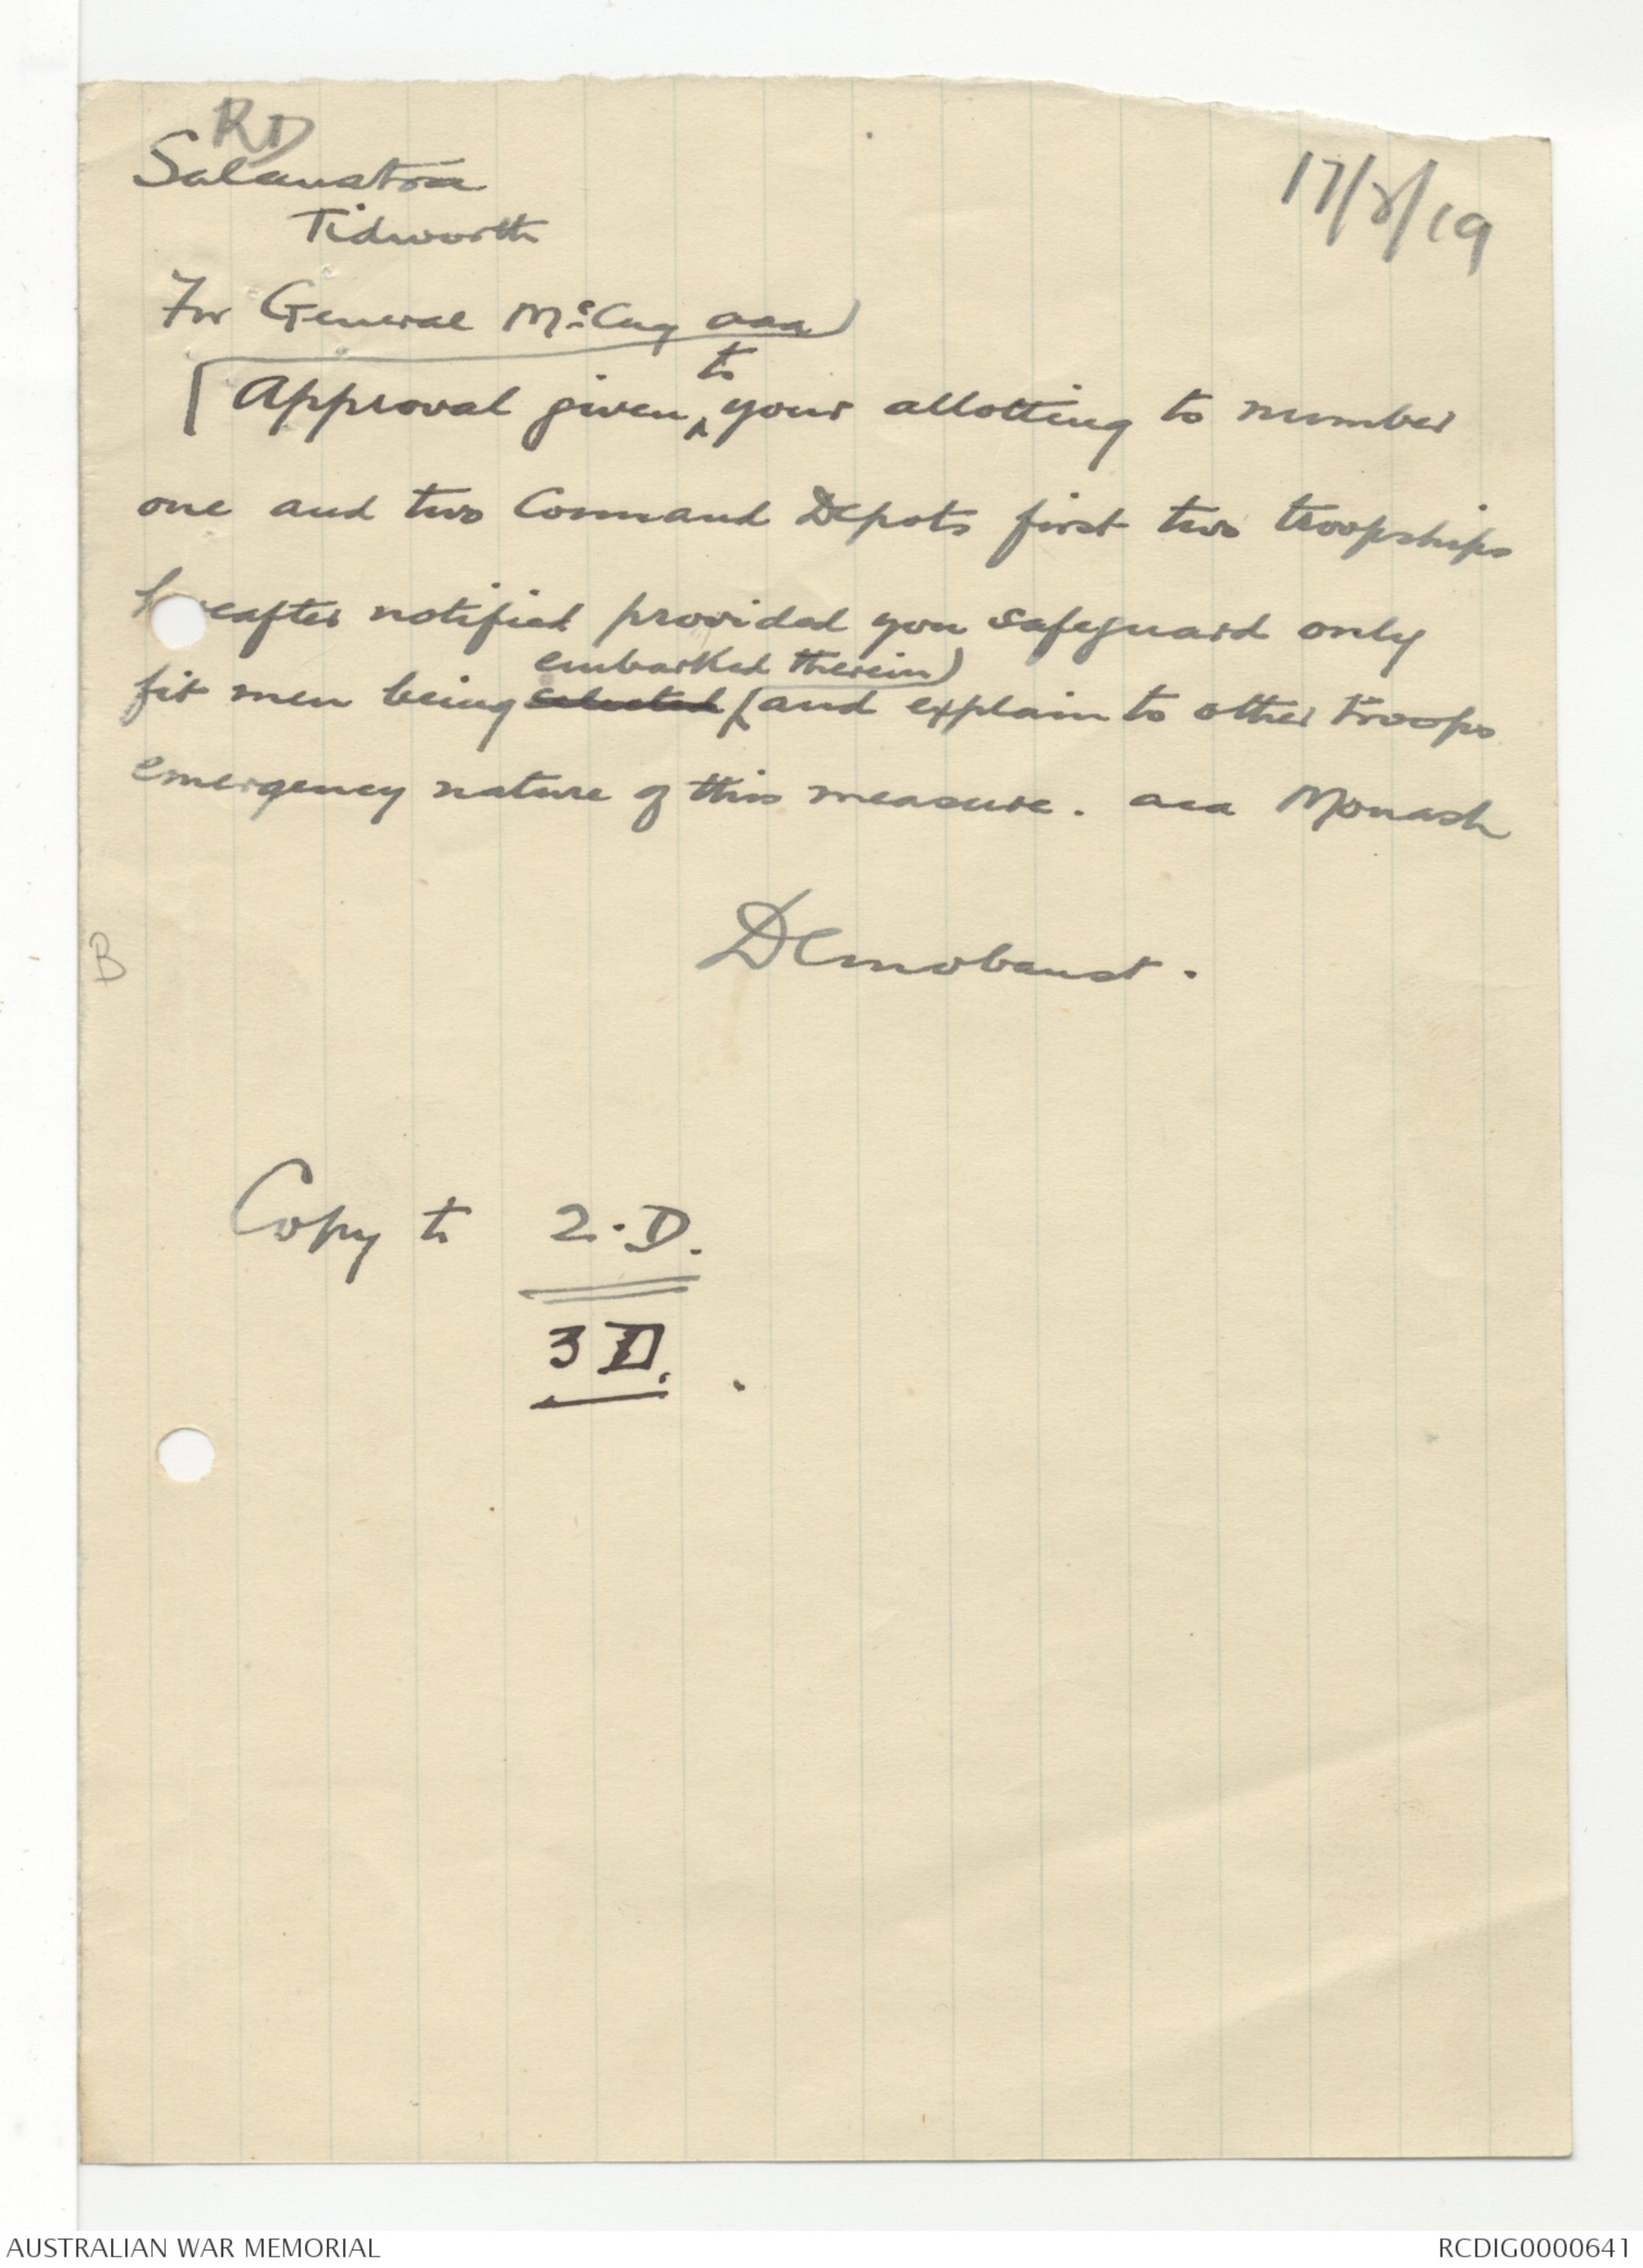 RD
17/3/19
Salaustra
Tidworth
For General McCay aaa
to
Approval given your allotting to number
one and two Command Depots first two troopships
hereafter notified provided you safeguard only
embarked therein
fit men being selected and explain to other troops
emergency nature of this measure. aaa Monash
Demobaust.
B
Copy to 2.D.
3 D.
AUSTRALIAN WAR MEMORIAL
RCDIG0000641